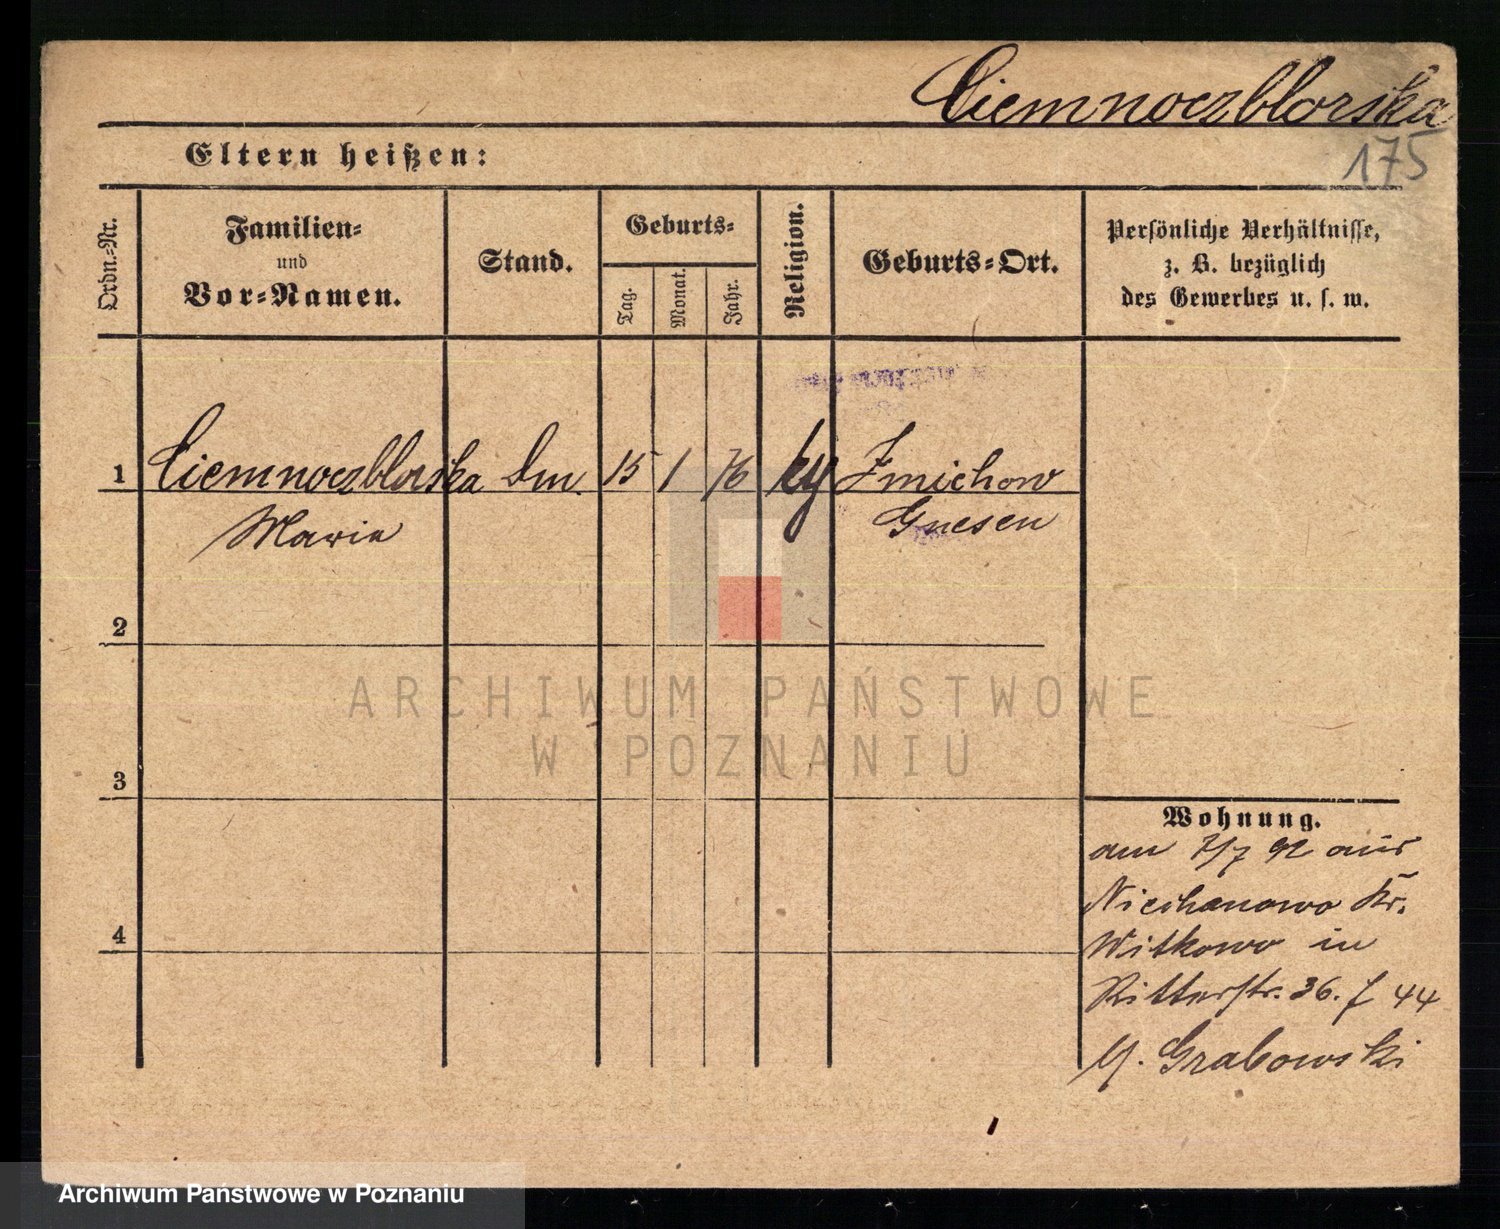 Ciemnoczblorska
175
Eltern heißen:
Ordn.-Nr.
Familien-
und
Vor-Namen.
Stand.
Geburts-
Tag.
Monat.
Jahr.
Religion.
Geburts-Ort.
Persönliche Verhältnisse,
z. B. bezüglich
des Gewerbes u. s. w.
1 Ciemnoczblorska Dm. 15 1 76 Zmichow
Marie Gnesen
2
3
4
Wohnung.
am 7/7 92 aus
Niechanowo Kr.
Witkowo in
Ritterstr. 36. f 44
b/. Grabowski
ARCHIWUM PAŃSTWOWE
W POZNANIU
Archiwum Państwowe w Poznaniu